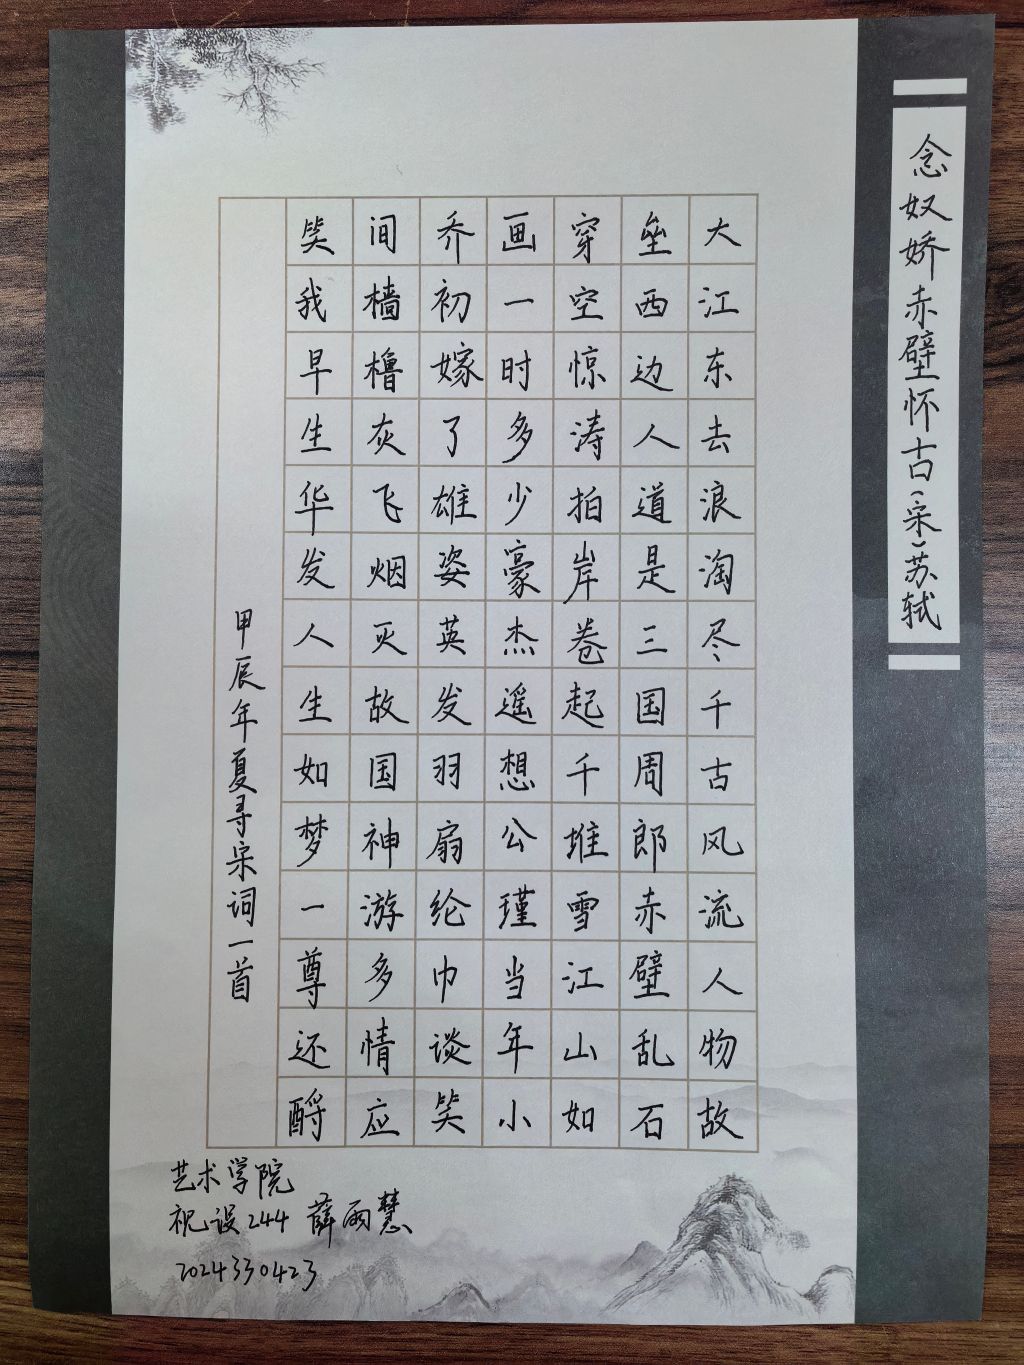 念奴娇赤壁怀古(宋)苏轼
大江东去浪淘尽千古风流人物故
垒西边人道是三国周郎赤壁乱石
穿空惊涛拍岸卷起千堆雪江山如
画一时多少豪杰遥想公瑾当年小
乔初嫁了雄姿英发羽扇纶巾谈笑
间樯橹灰飞烟灭故国神游多情应
笑我早生华发人生如梦一尊还酹
甲辰年夏寻宋词一首
艺术学院
视设244 薛雨慧
2024330423